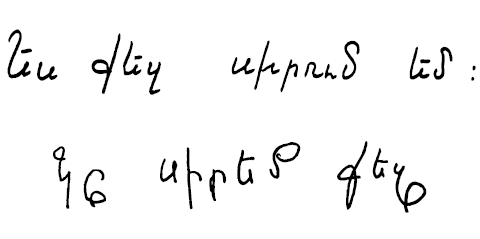 Ես քեզ սիրում եմ:
Կը սիրեմ քեզ